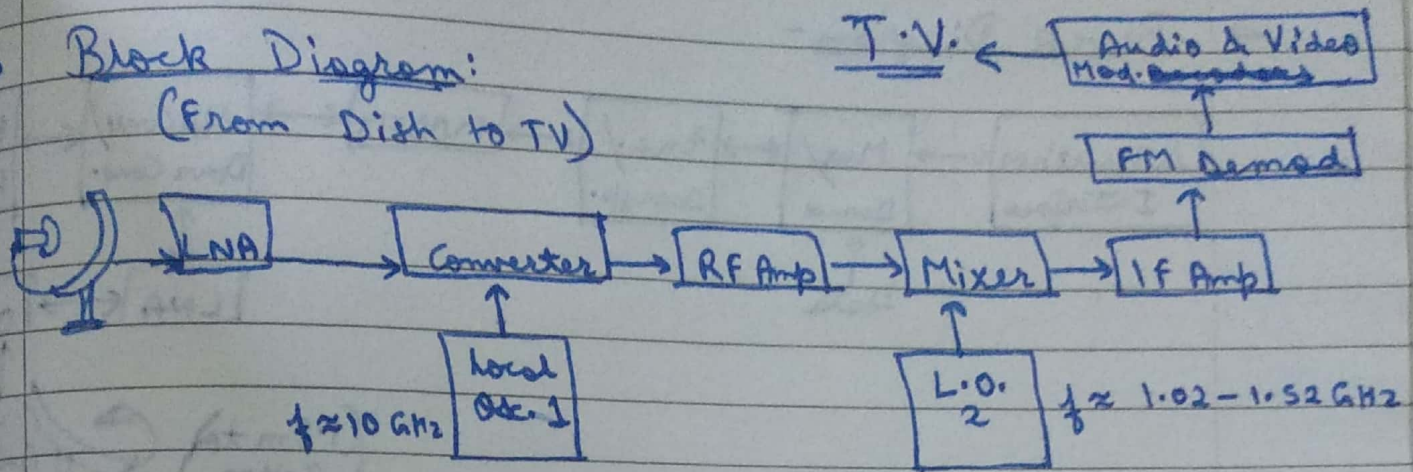 Block Diagram:
(From Dish to TV)
T.V.
Audio & Video
Mod.
FM Demod
LNA
Converter
RF Amp
Mixer
IF Amp
Local
Osc. 1
f ≈ 10 GHz
L.O.
2
f ≈ 1.02 - 1.52 GHz